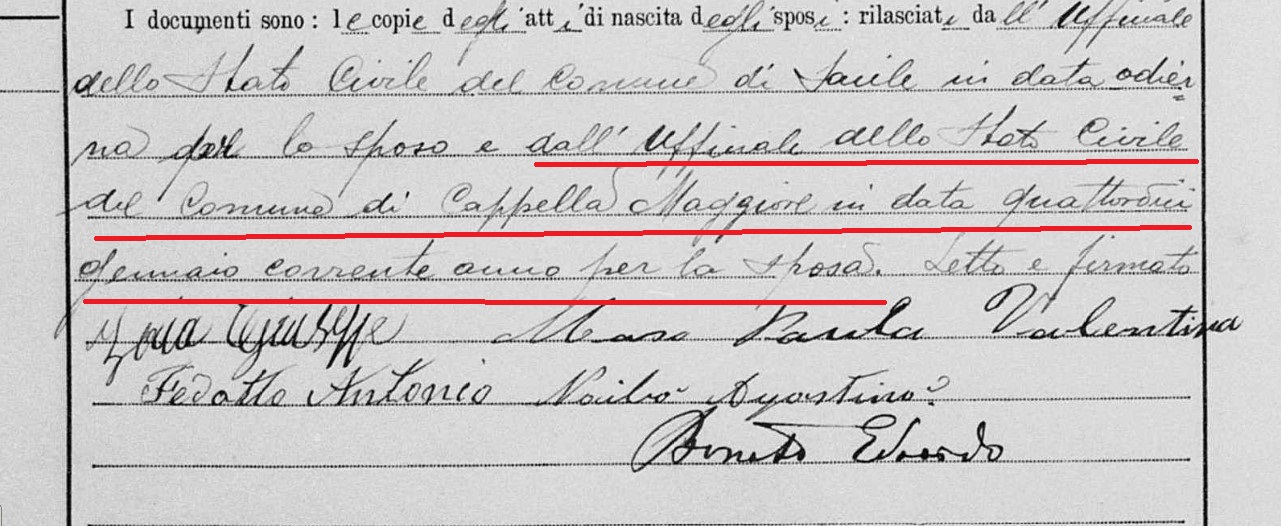 I documenti sono : le copie degli atti di nascita degli sposi : rilasciati dall' Uffiziale
dello Stato Civile del Comune di Sacile in data odier=
na per lo sposo e dall' Uffiziale dello Stato Civile
del Comune di Cappella Maggiore in data quattordici
gennaio corrente anno per la sposa. Letto e firmato
Giuseppe Maso Paola Valentina
Fedatto Antonio Naibo Agostino
Edoardo